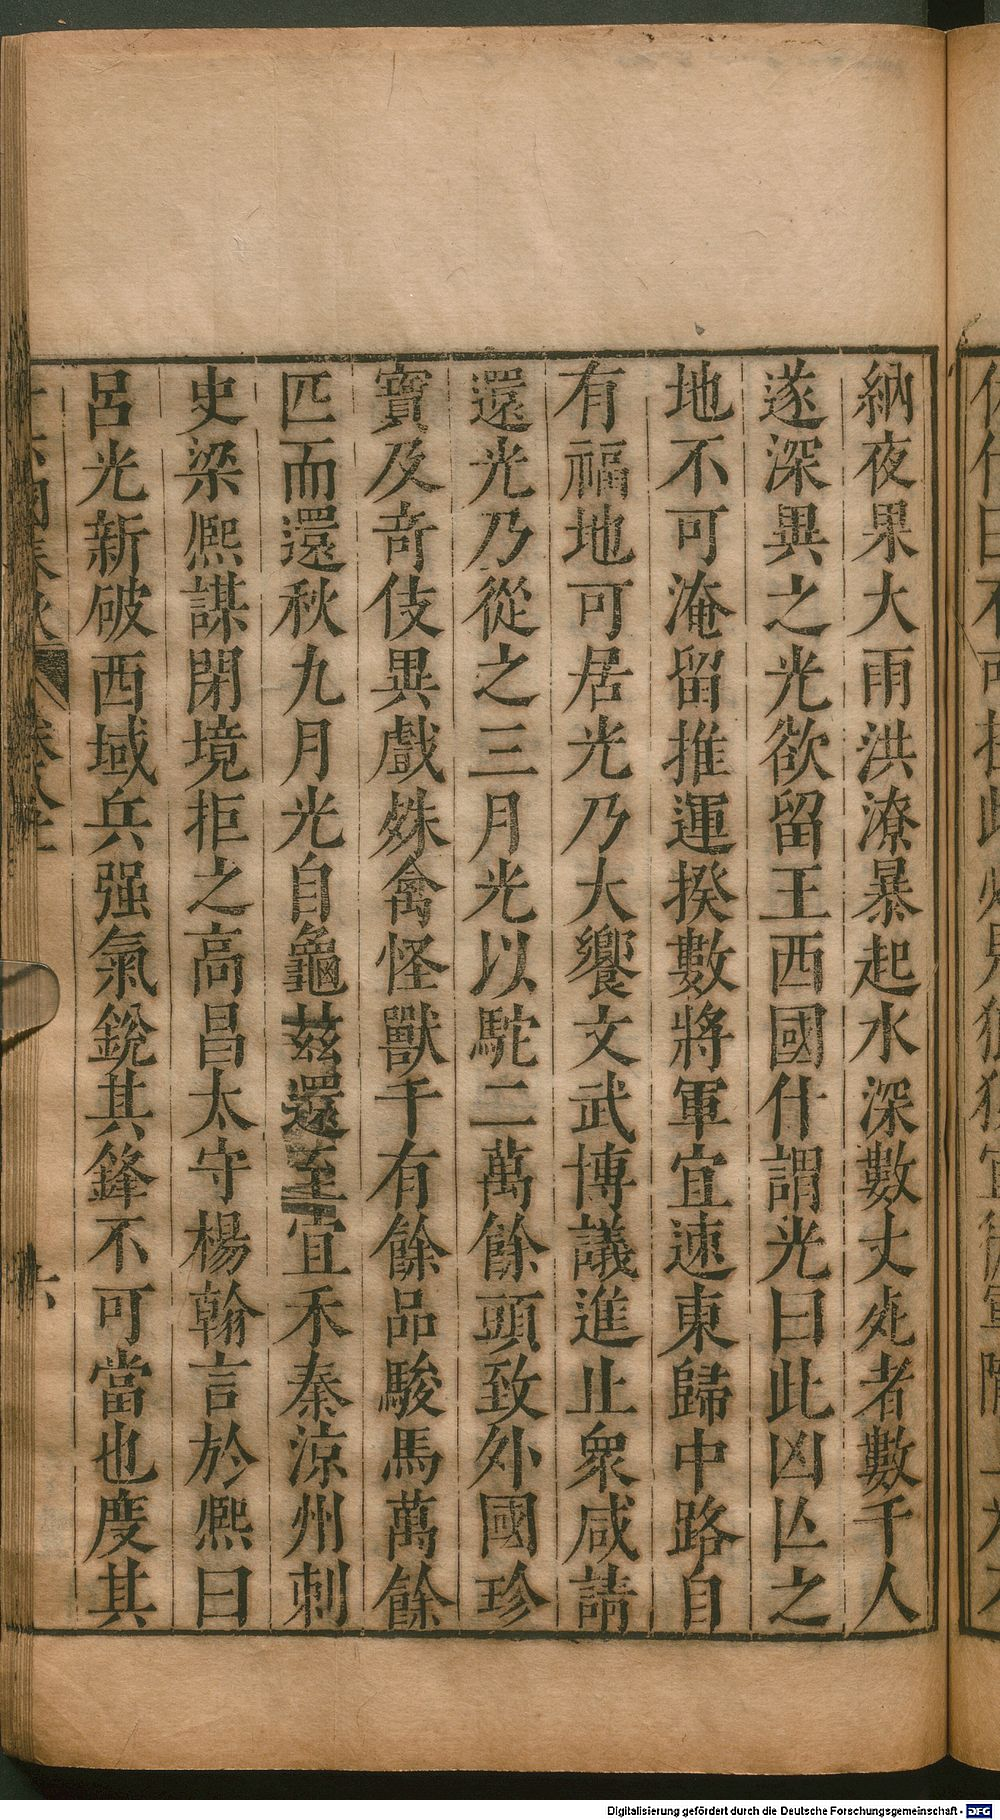 納夜果大雨洪潦暴起水深數丈死者數千人
遂深異之光欲留王西國什謂光曰此凶亾之
地不可淹留推運揆數將軍宜速東歸中路自
有福地可居光乃大饗文武博議進止衆咸請
還光乃從之三月光以駝二萬餘頭致外國珍
寶及奇伎異戲殊禽怪獸千有餘品駿馬萬餘
匹而還秋九月光自龜茲還至宜禾秦涼州刺
史梁熈謀閉境拒之高昌太守楊翰言於熈曰
呂光新破西域兵强氣銳其鋒不可當也度其
六
Digitalisierung gefördert durch die Deutsche Forschungsgemeinschaft - DFG